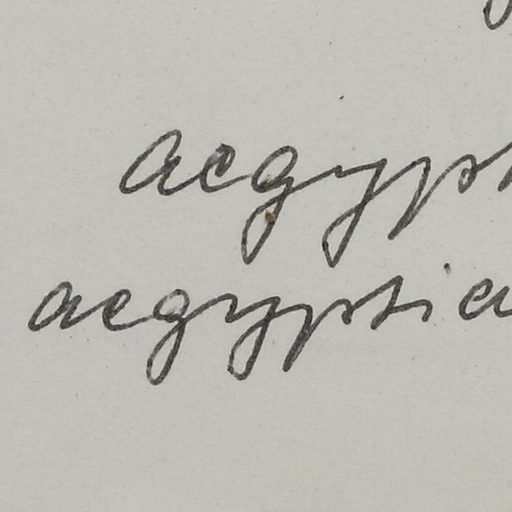 aegypt
aegyptia